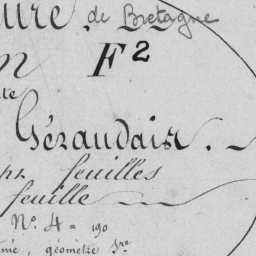 ure de Bretagne
n F²
de
Géraudais.
pr feuilles
feuille
N.º 4 = 190
mé, géomètre